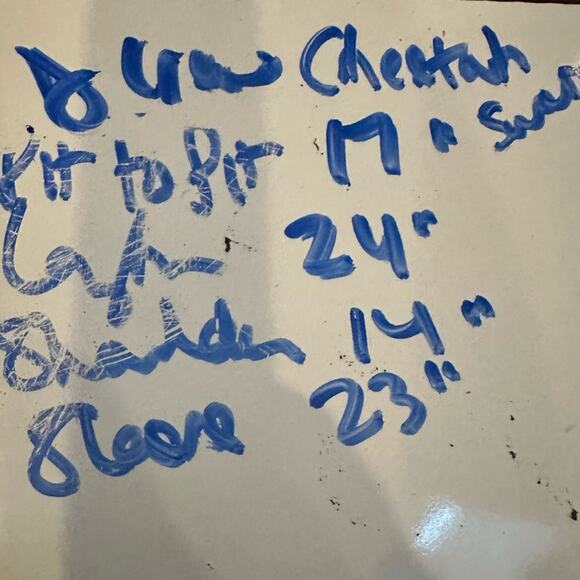 Cheetah
Pit to Pit 17"
Length 24"
Shoulder 14"
Sleeve 23"